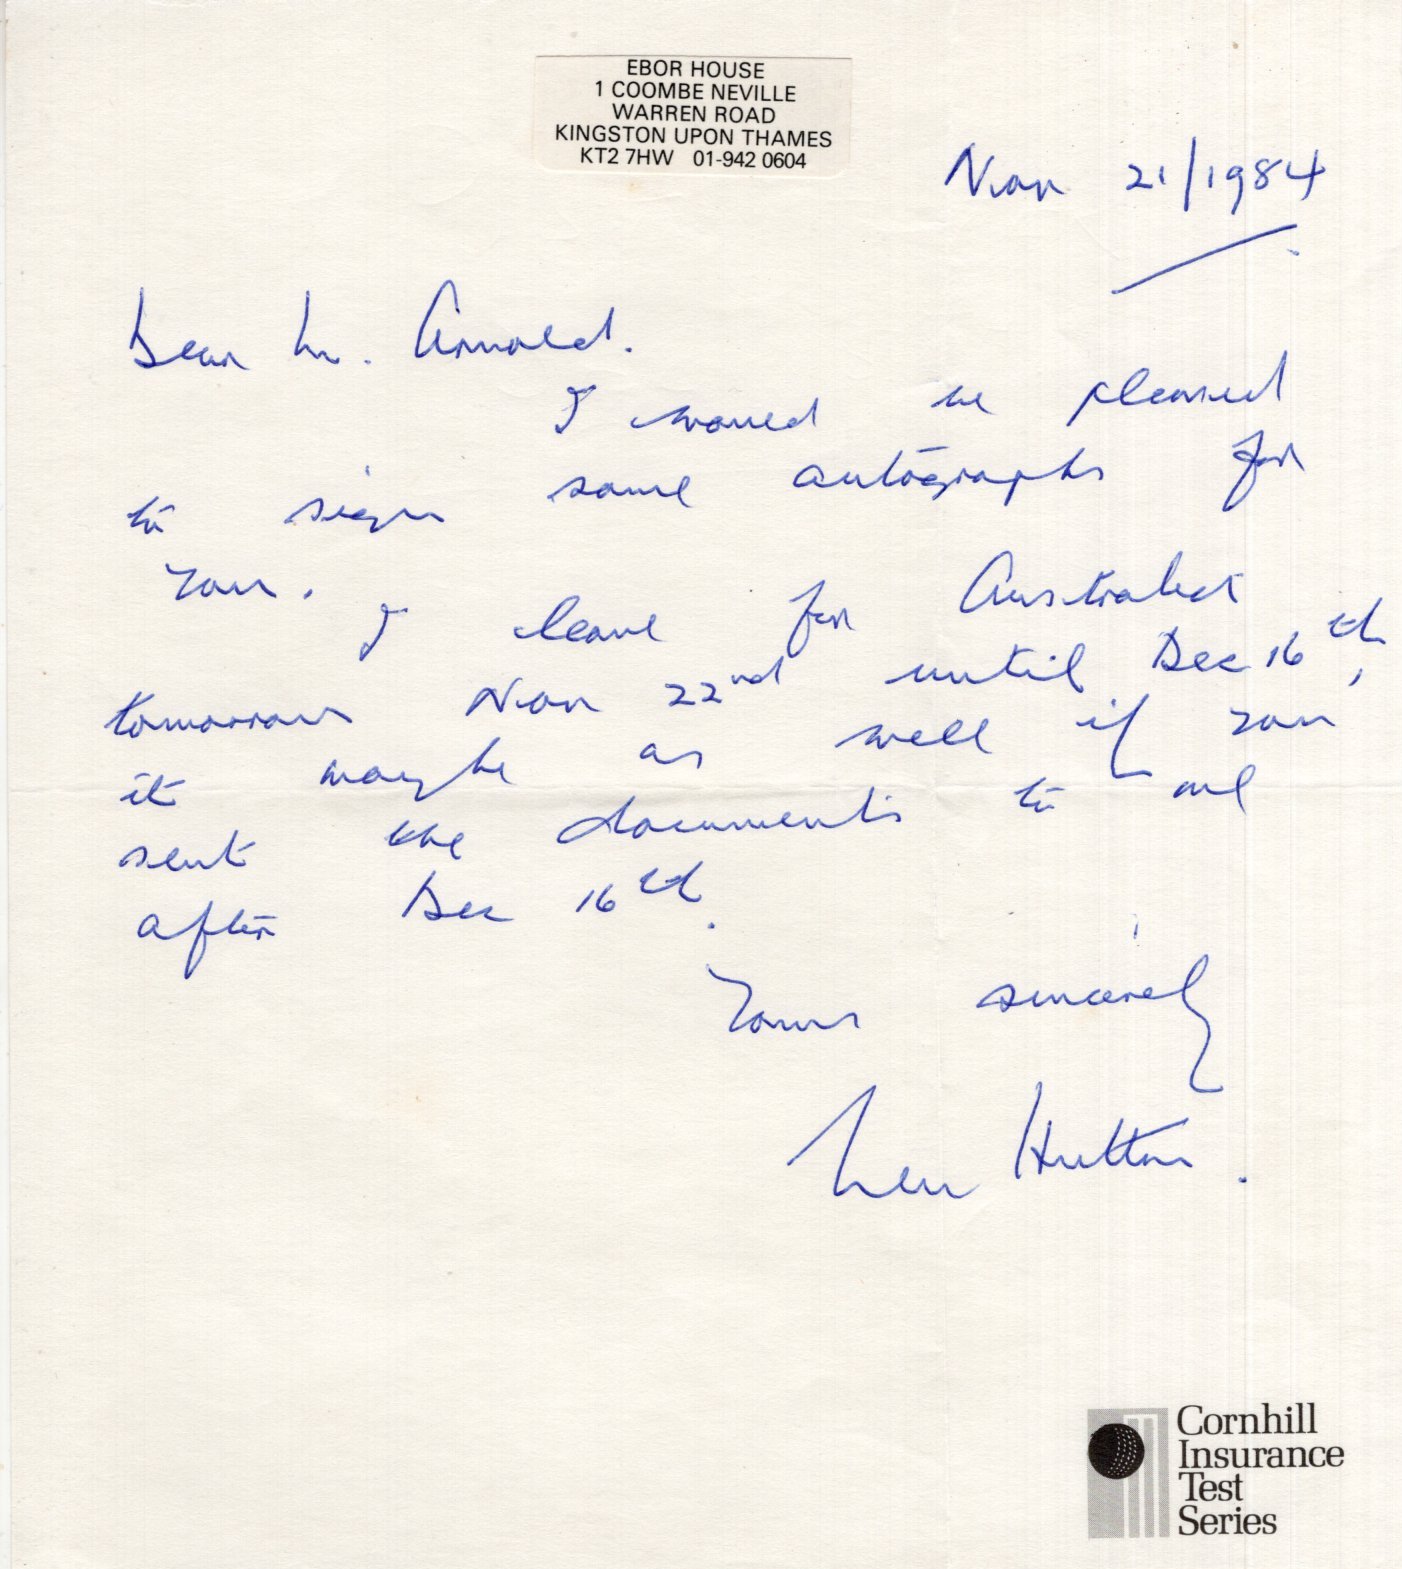 EBOR HOUSE
1 COOMBE NEVILLE
WARREN ROAD
KINGSTON UPON THAMES
KT2 7HW 01-942 0604
Nov 21/1984
Dear Mr. Arnold.
I would be pleased
to sign some autographs for
you.
I leave for Australia
tomorrow Nov 22nd until Dec 16th,
it maybe as well if you
sent the documents to me
after Dec 16th.
Yours sincerely
Len Hutton.
Cornhill
Insurance
Test
Series